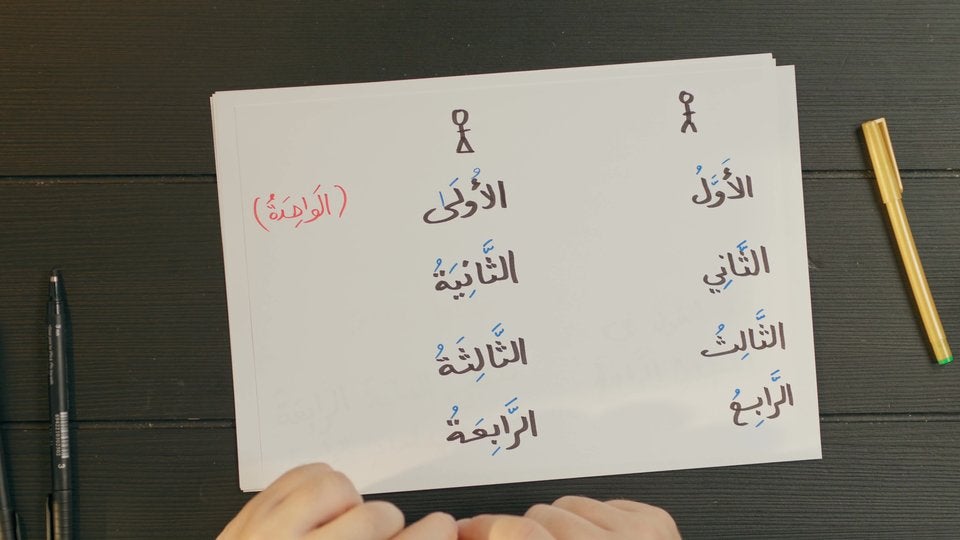 الأَوَّلُ الأُولَى (الوَاحِدَةُ)
الثَّانِي الثَّانِيَةُ
الثَّالِثُ الثَّالِثَةُ
الرَّابِعُ الرَّابِعَةُ